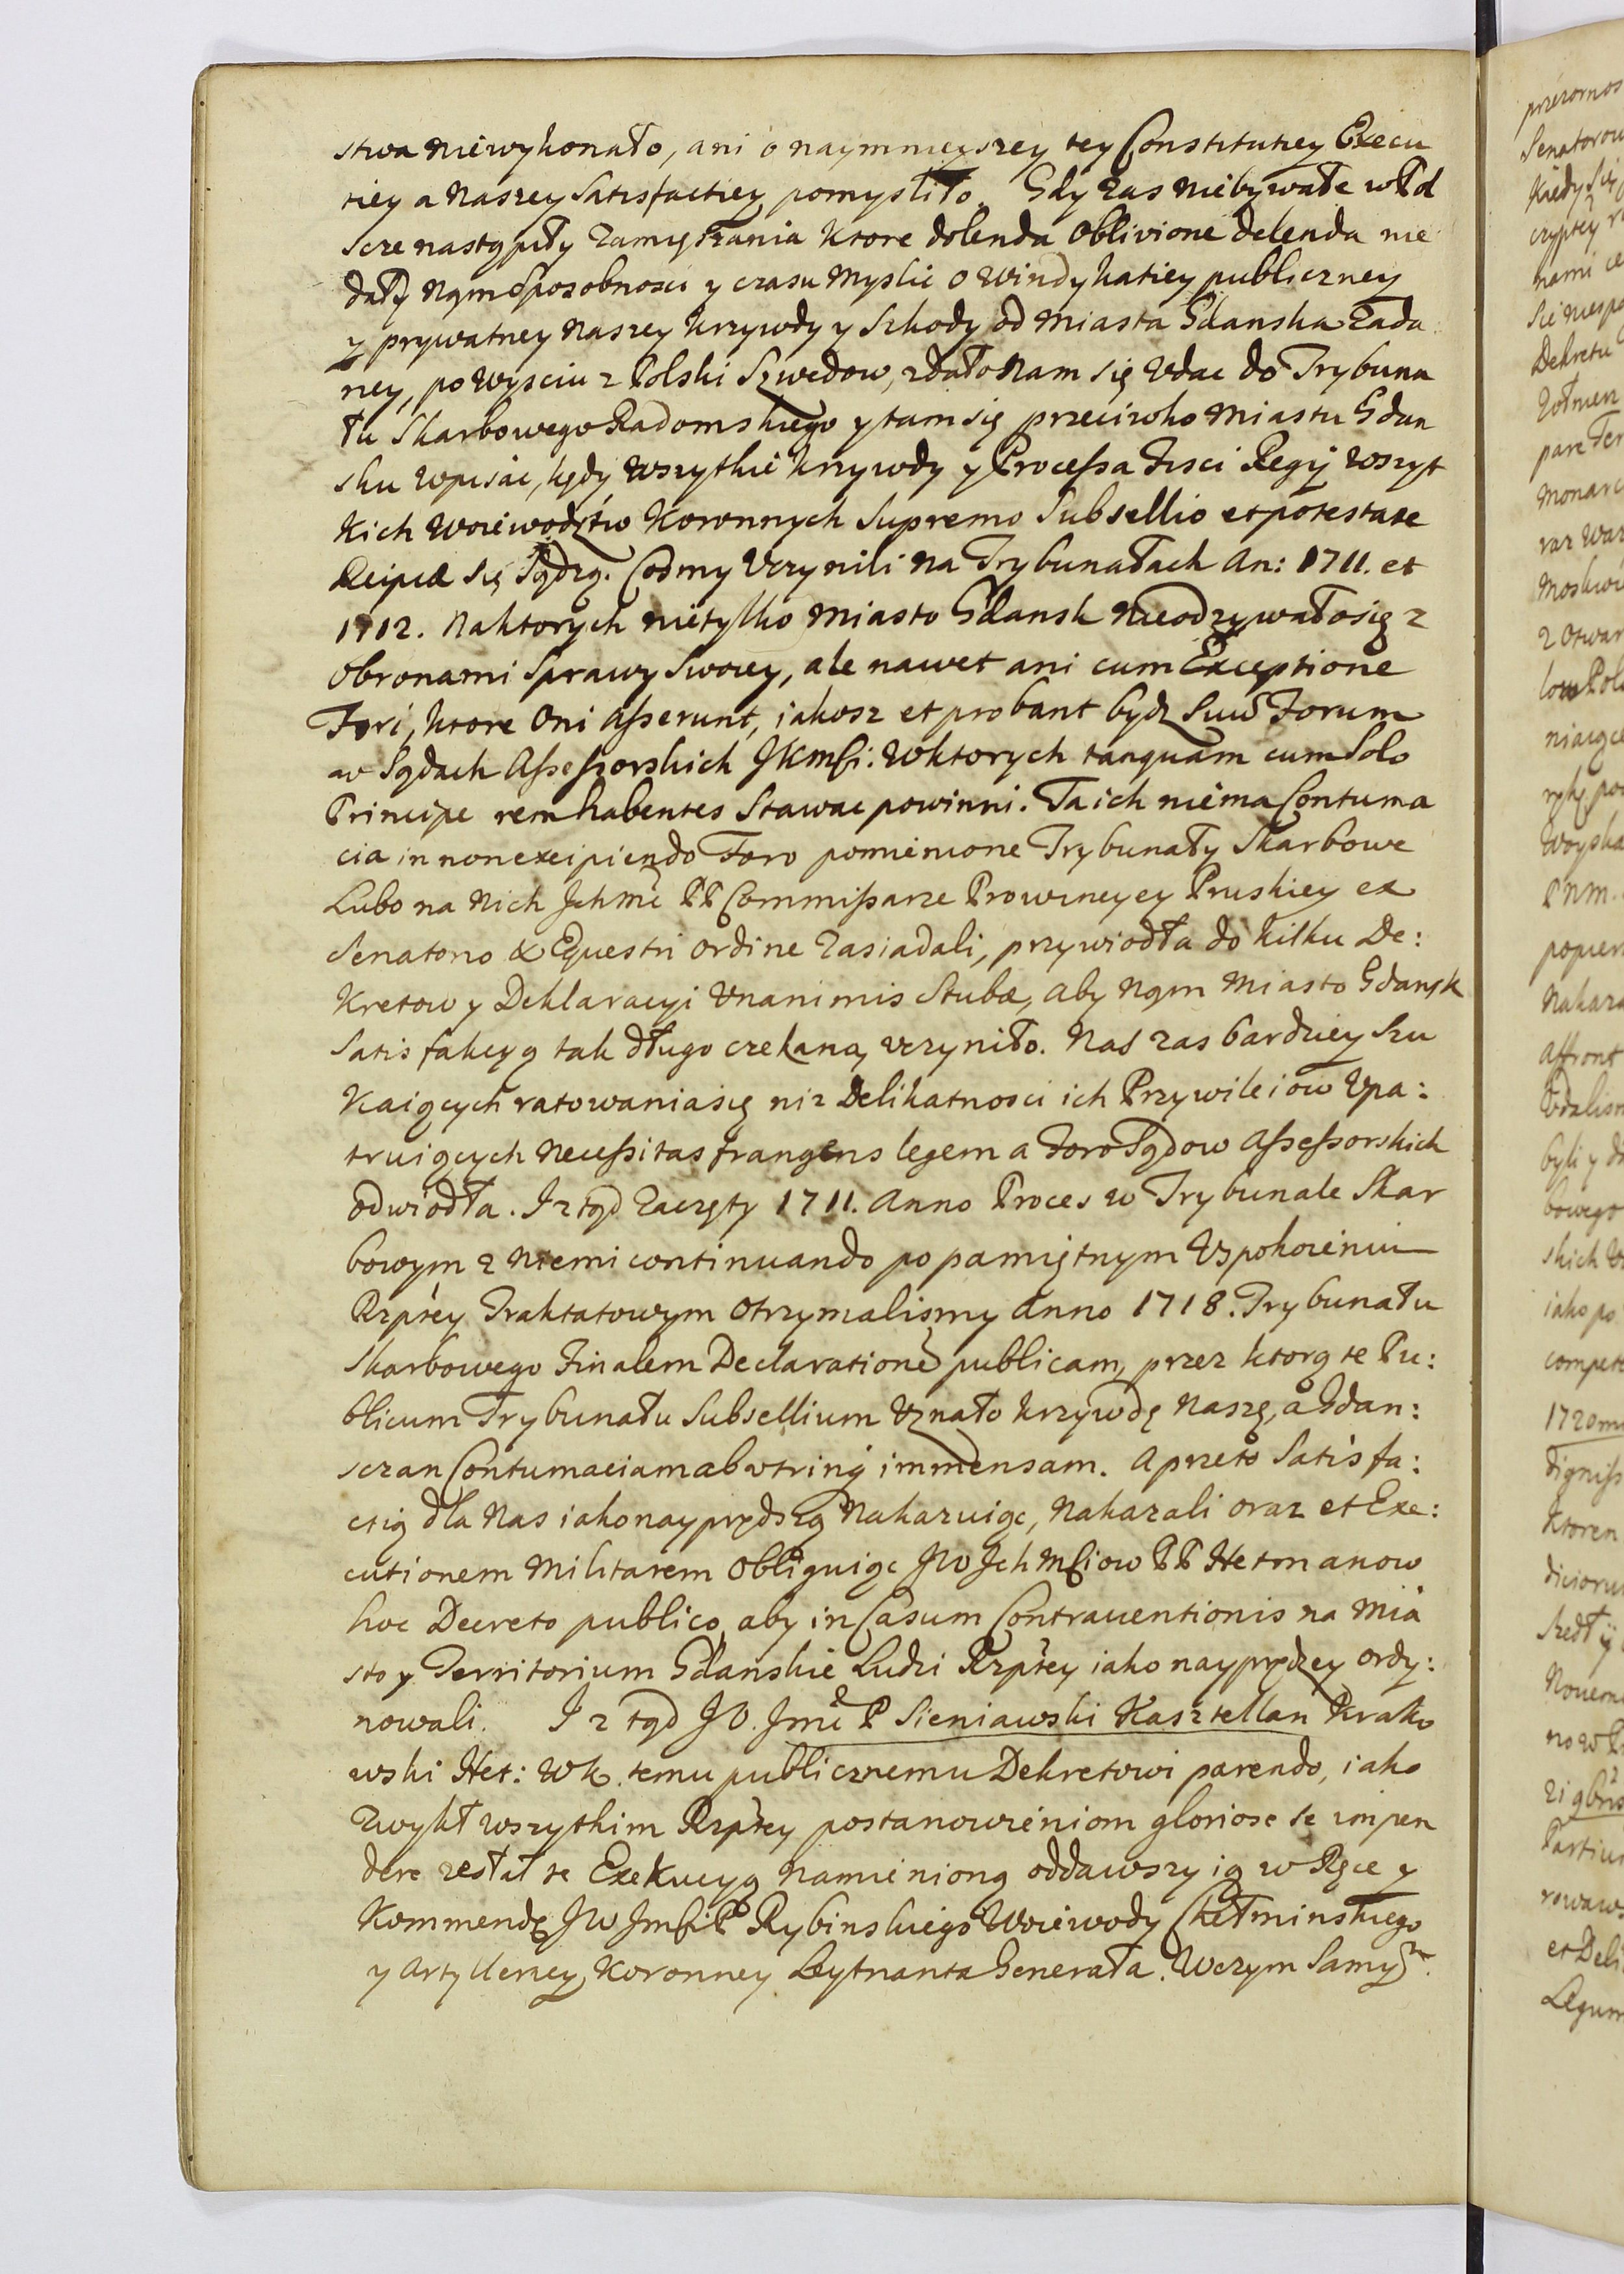 stwa niewykonało, ani o naymnieyszey tey Constitutiey Execu
tiey a Naszey Satisfactiey pomysliło. Gdy zas niebywałe w Pol
scze nastąpiły Zamięszania Ktore dolenda Oblivione delenda nie
dały Nąm Sposobnosci y czasu Myslic o Windykatiey publiczney
y prywatney Naszey krzywdy y Szkody od Miasta Gdanska Zada
ney, po Wysciu z Polski Szwedow, zdało Nam się Udac do Trybuna
łu Skarbowego Radomskiego y tam się przeciwko Miastu Gdan
sku Wpisac, kędy Wszytkie krzywdy y Processa Fisci Regij Wszyt
Kich Woiewodztw Koronnych Supremo Subsellio et potestate
Reipcæ Się Sądzą. Cosmy Uczynili Na Trybunałach An: 1711. et
1712. Naktorych nietylko Miasto Gdansk Nieodzywałosię z
Obronami Sprawy Swoiey, ale nawet ani cum Exceptione
Fori, ktore Oni Asserunt, iakosz et probant bydz Suũ Forum
w Sądach Assessorskich JKmsci: Wktorych tanquam cum Solo
Principe rem habentes Stawac powinni. Ta ich niema Contuma
cia in non excipiendo Foro pomienione Trybunały Skarbowe
Lubo na Nich Jchmc PP Commissarze Prowincyey Pruskiey ex
Senatorio & Equestri Ordine Zasiadali, przywiodła do kilku De:
Kretow y Deklaracyi Unanimis Stubæ, Aby Nąm Miasto Gdansk
Satisfakcyą tak długo czekaną uczyniło. Nas zas bardziey Szu
Kaiących ratowaniasię niz Delikatnosci ich Przywileiow Upa:
truiących Necessitas frangens legem a Foro Sądow Assessorskich
odwiodła. I ztąd Zaczęty 1711. Anno Proces w Trybunale Skar
bowym z Niemi continuando po pamiętnym Uspokoieniu
Rzptey Traktatowym Otrzymalismy Anno 1718. Trybunału
Skarbowego Finalem Declarationẽ publicam, przez ktorą te Pu:
blicum Trybunału Subsellium Uznało krzywdę Naszę, a Gdan:
sczan Contumaciam ab utrinq immensam. A przeto Satisfa:
ctią dla Nas iakonayprędszą Nakazuiąc, Nakazali oraz et Exe:
cutionem Militarem Obliguiąc JW JchMsciow PP Hetmanow
hoc Decreto publico, aby in Casum Contraventionis na Mia
sto y Territorium Gdanskie Ludzi Rzptey iako nayprędzey ordy:
nowali. I ztąd JW. Jmc P Sieniawski Kasztellan Krako
wski Het: WK. temu publicznemu Dekretowi parendo, iako
Zwykł wszytkim Rzptey postanowieniom gloriose se impen
dere zesłał te Exekucyą Namienioną oddawszy ią w Ręce y
Kommendę JW Jmsci P Rybinskiego Woiewody Chełminskiego
y Artylleriey Koronney Leytnanta Generała. Wczym Samy